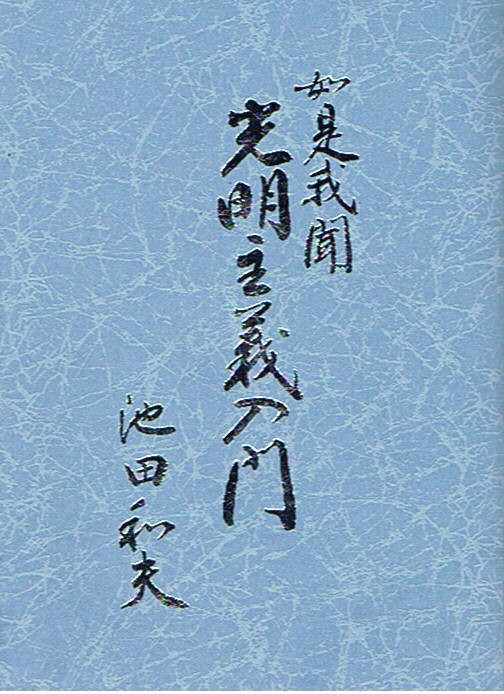 如是我聞
光明主義入門
池田和夫